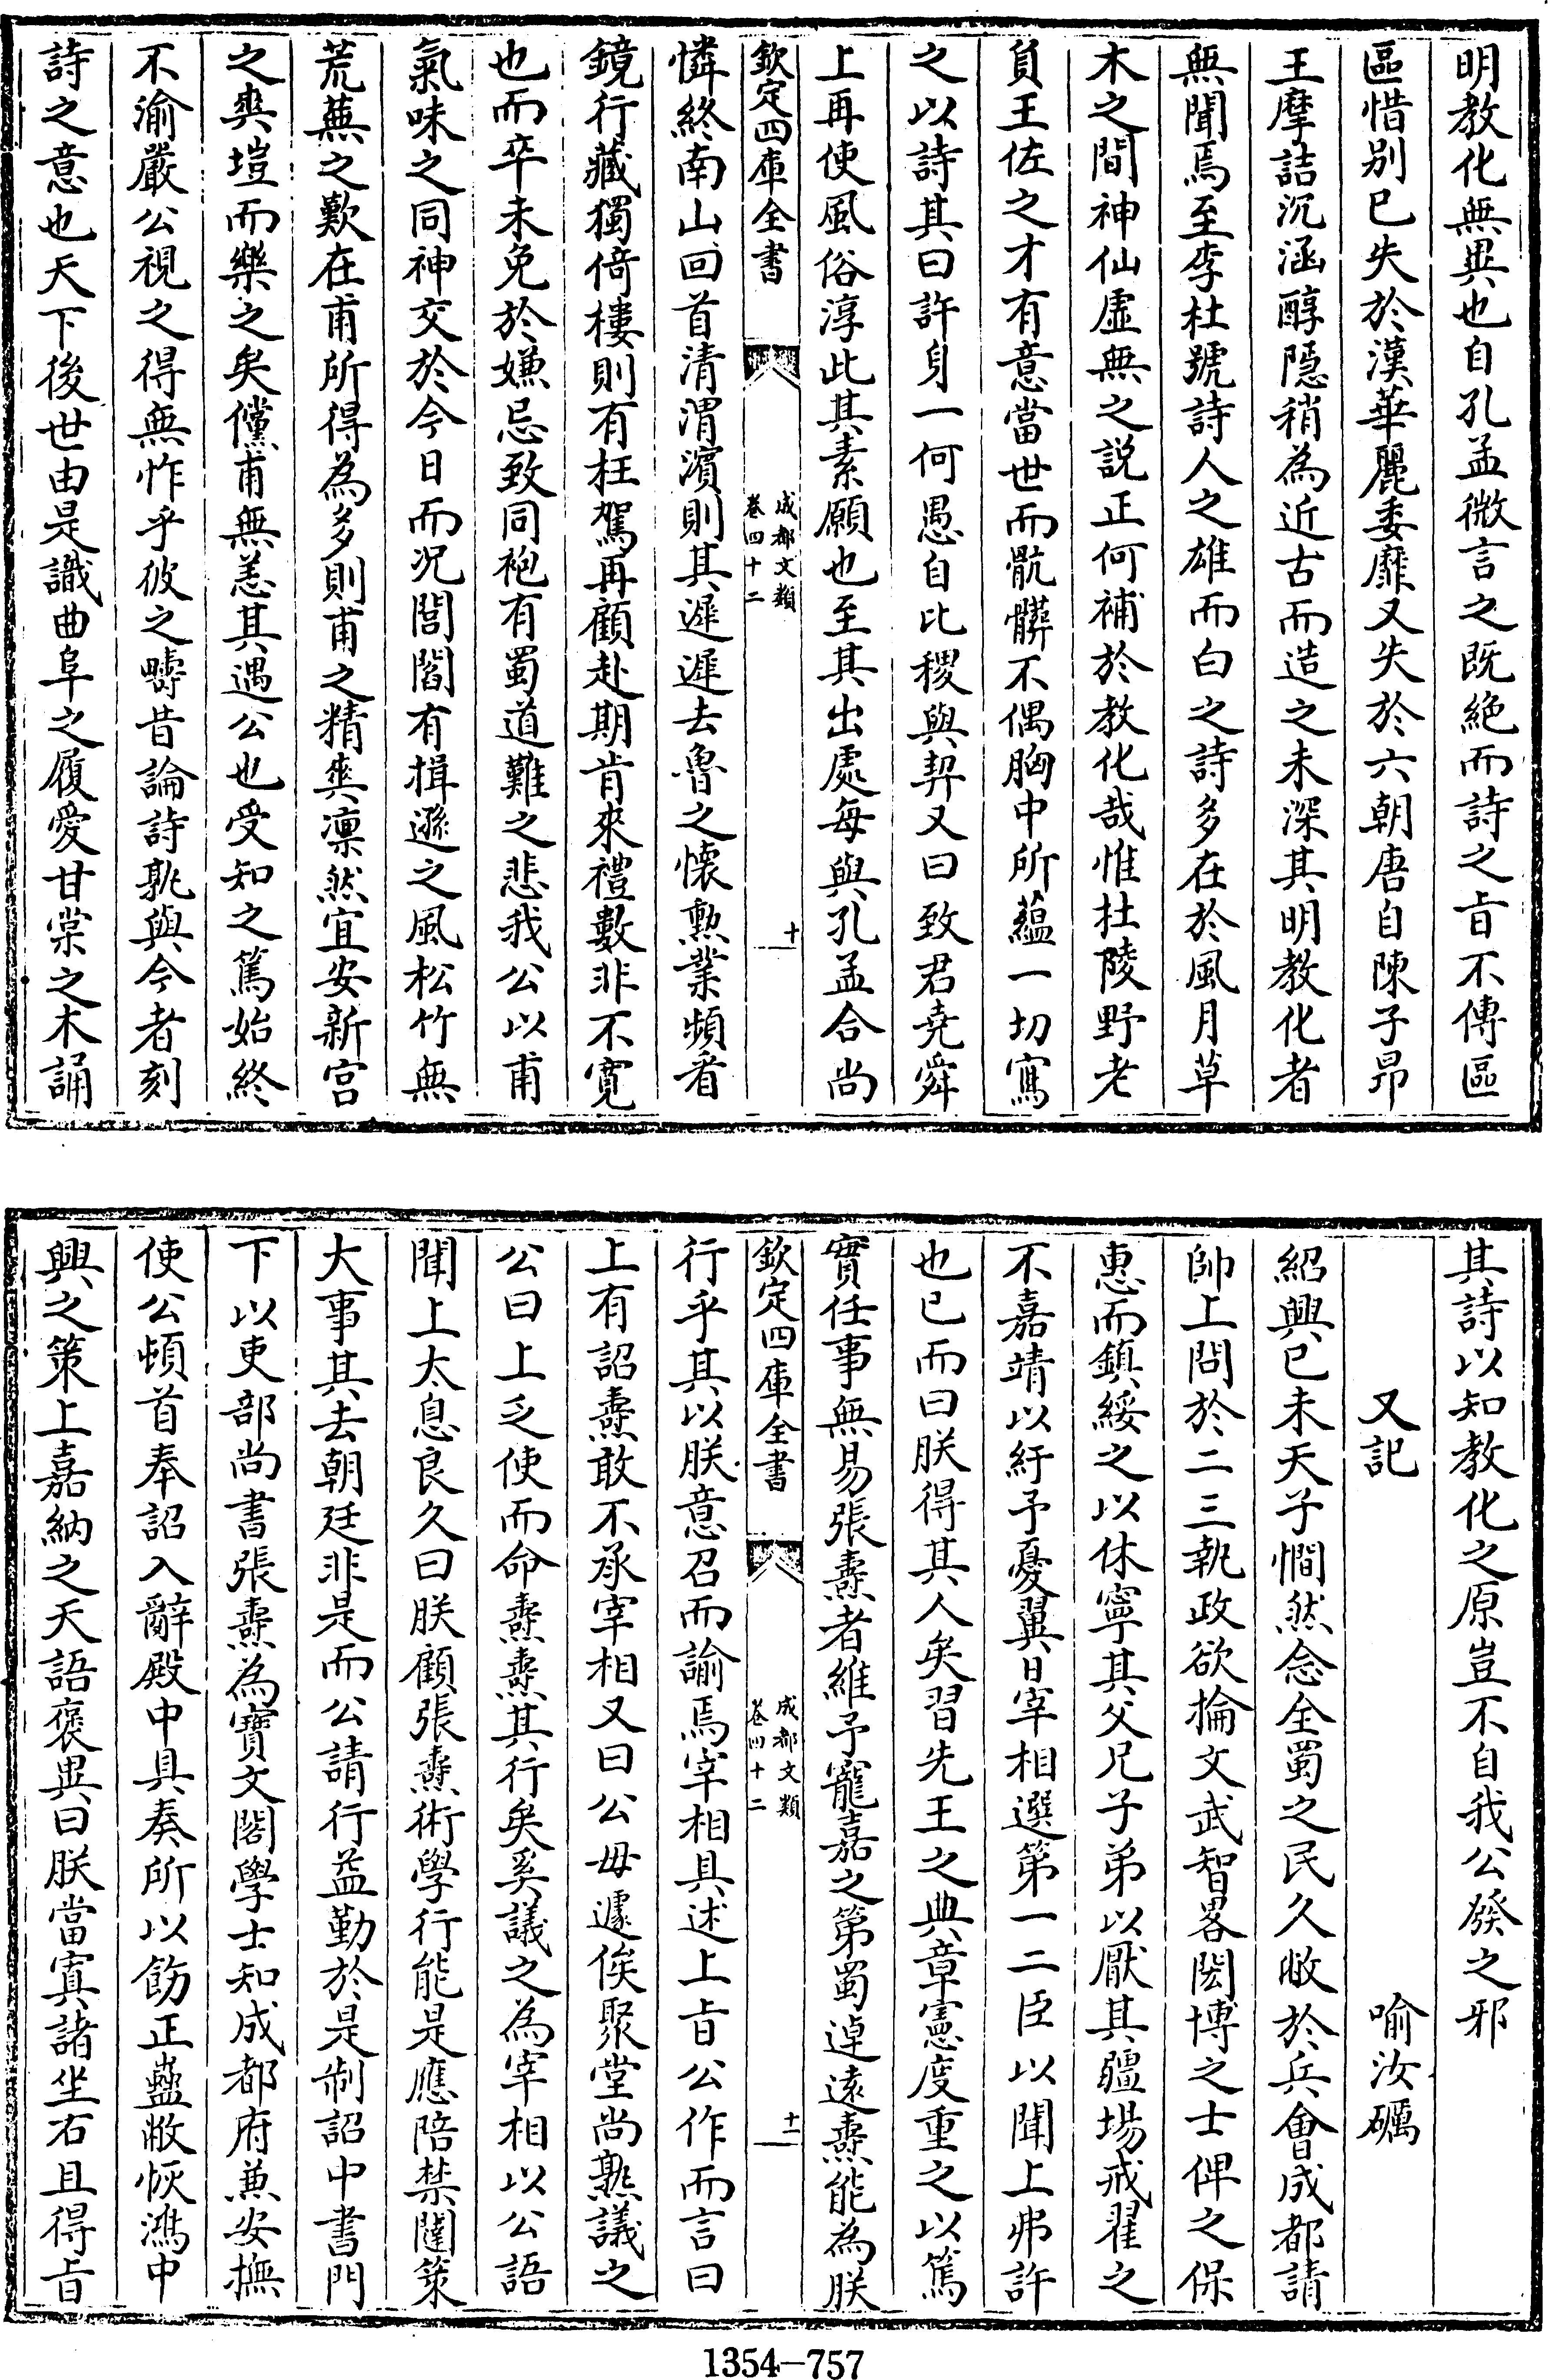 明教化無異也自孔孟微言之既絶而詩之㫖不傳區
區惜别已失於漢華麗委靡又失於六朝唐自陳子昂
王摩詰沉涵醇隠稍為近古而造之未深其明教化者
無聞焉至李杜號詩人之雄而白之詩多在於風月草
木之間神仙虚無之説正何補於教化哉惟杜陵野老
負王佐之才有意當世而骯髒不偶胸中所藴一切寫
之以詩其曰許身一何愚自比稷與契又曰致君堯舜
上再使風俗淳此其素願也至其出處每與孔孟合尚
欽定四庫全書
成都文類
卷四十二
十
憐終南山回首清渭濱則其遲遲去魯之懐勲業頻看
鏡行藏獨倚樓則有枉駕再顧赴期肯來禮數非不寛
也而卒未免於嫌忌致同袍有蜀道難之悲我公以甫
氣味之同神交於今日而况閭閻有揖遜之風松竹無
荒蕪之歎在甫所得為多則甫之精爽凛然宜安新宫
之爽塏而樂之矣儻甫無恙其遇公也受知之篤始終
不渝嚴公視之得無怍乎彼之疇昔論詩孰與今者刻
詩之意也天下後世由是識曲阜之履愛甘棠之木誦
其詩以知教化之原豈不自我公發之邪
又記
喻汝礪
紹興已未天子憪然念全蜀之民久敝於兵會成都請
帥上問於二三執政欲掄文武智畧閎博之士俾之保
惠而鎮綏之以休寧其父兄子弟以厭其疆場戒翟之
不嘉靖以紓予憂翼日宰相選第一二臣以聞上弗許
也已而曰朕得其人矣習先王之典章憲度重之以篤
實任事無易張燾者維予寵嘉之第蜀逴遠燾能為朕
欽定四庫全書
成都文類
卷四十二
十一
行乎其以朕意召而諭焉宰相具述上㫖公作而言曰
上有詔燾敢不承宰相又曰公毋遽俟聚堂尚熟議之
公曰上乏使而命燾燾其行矣奚議之為宰相以公語
聞上太息良久曰朕顧張燾術學行能是應陪禁闥策
大事其去朝廷非是而公請行益勤於是制詔中書門
下以吏部尚書張燾為寳文閣學士知成都府兼安撫
使公頓首奉詔入辭殿中具奏所以飭正蠱敝恢鴻中
興之策上嘉納之天語褒異曰朕當寘諸坐右且得㫖
1354-757